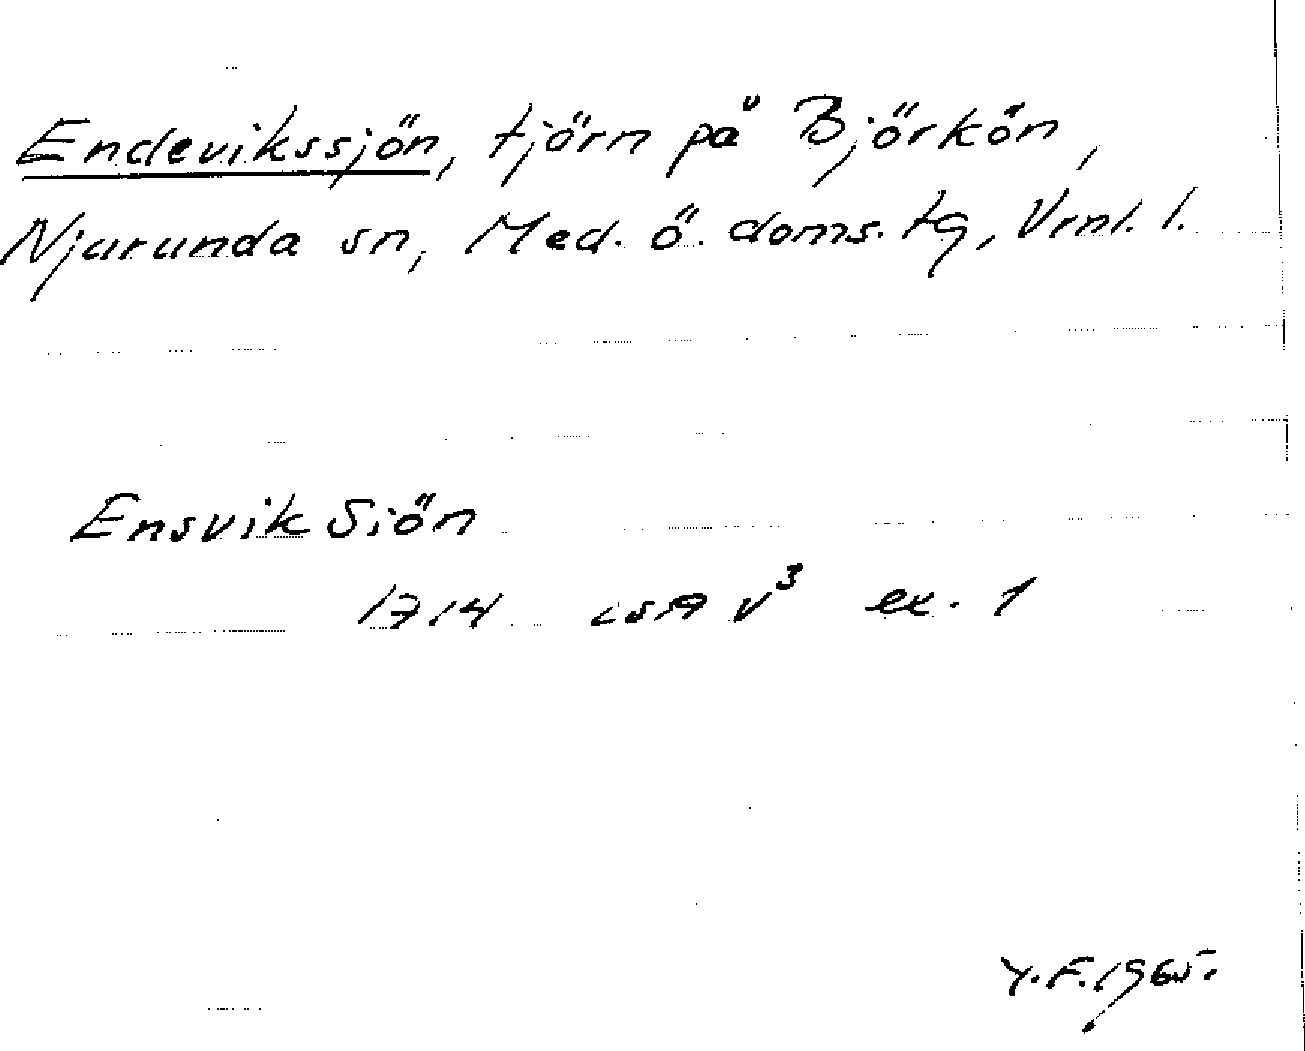 Endevikssjön, tjörn på Björkön,
Njurunda sn, Med. ö. doms. tg, Vrnl. l.
Ensvik Siön
1714 LSA V³ ex. 1
Y.F. 1965.